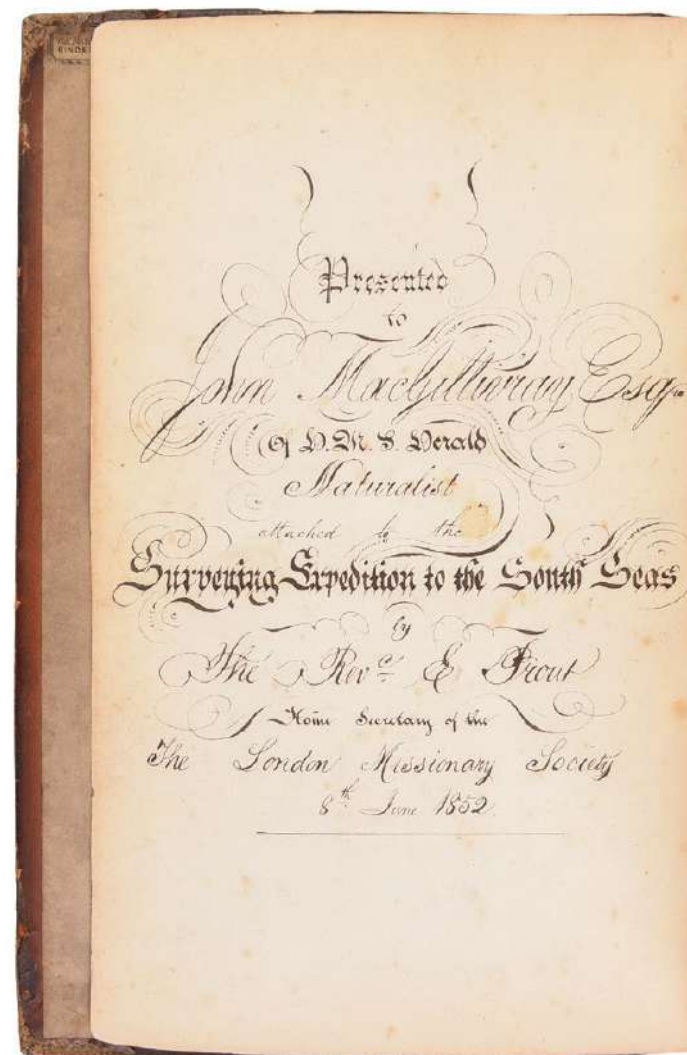 BINDE
Presented
to
John MacGillivray Esqre
Of H.M.S. Herald
Naturalist
attached to the
Surveying Expedition to the South Seas
by
The Revd. E Prout
Home Secretary of the
The London Missionary Society
8th June 1852